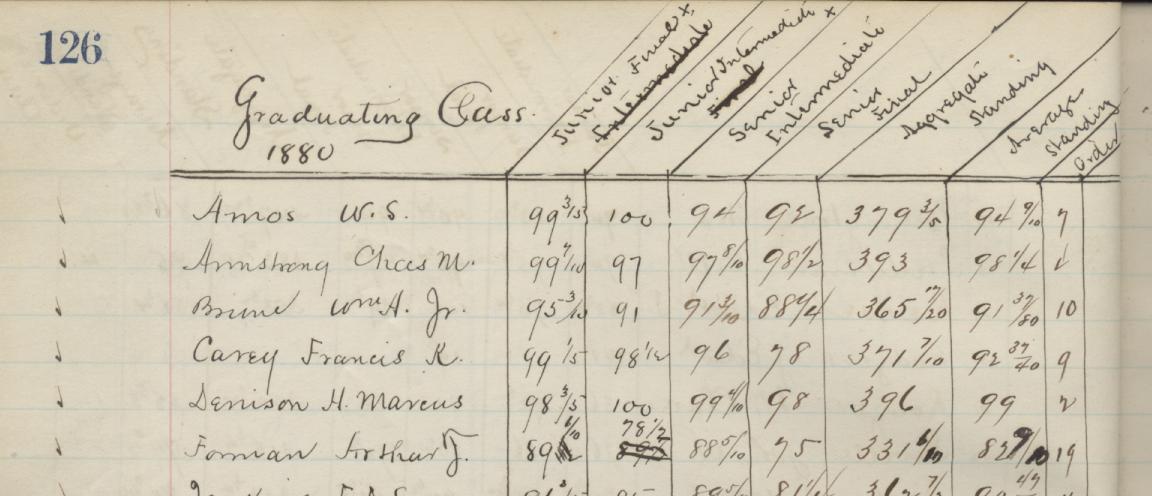 126
Graduating Class.
1880
Junior Final x
Intermediate
Junior Intermediate x
Final
Senior Intermediate
Senior Final
Aggregate Standing
Average Standing
Order
Amos W.S. 99 3/5 100 94 92 379 3/5 94 9/10 7
Armstrong Chas M. 99 7/10 97 97 8/10 98 1/2 393 98 1/4
Brune Wm A. Jr. 95 3/10 91 91 3/10 365 17/20 91 37/80 10
Carey Francis K. 99 1/5 98 1/2 96 78 371 7/10 92 37/40 9
Denison H. Marcus 98 3/5 100 99 4/10 98 396 99 2
Foman Arthur J. 89 6/10 78 1/2 88 5/10 75 331 6/10 82 9/10 19